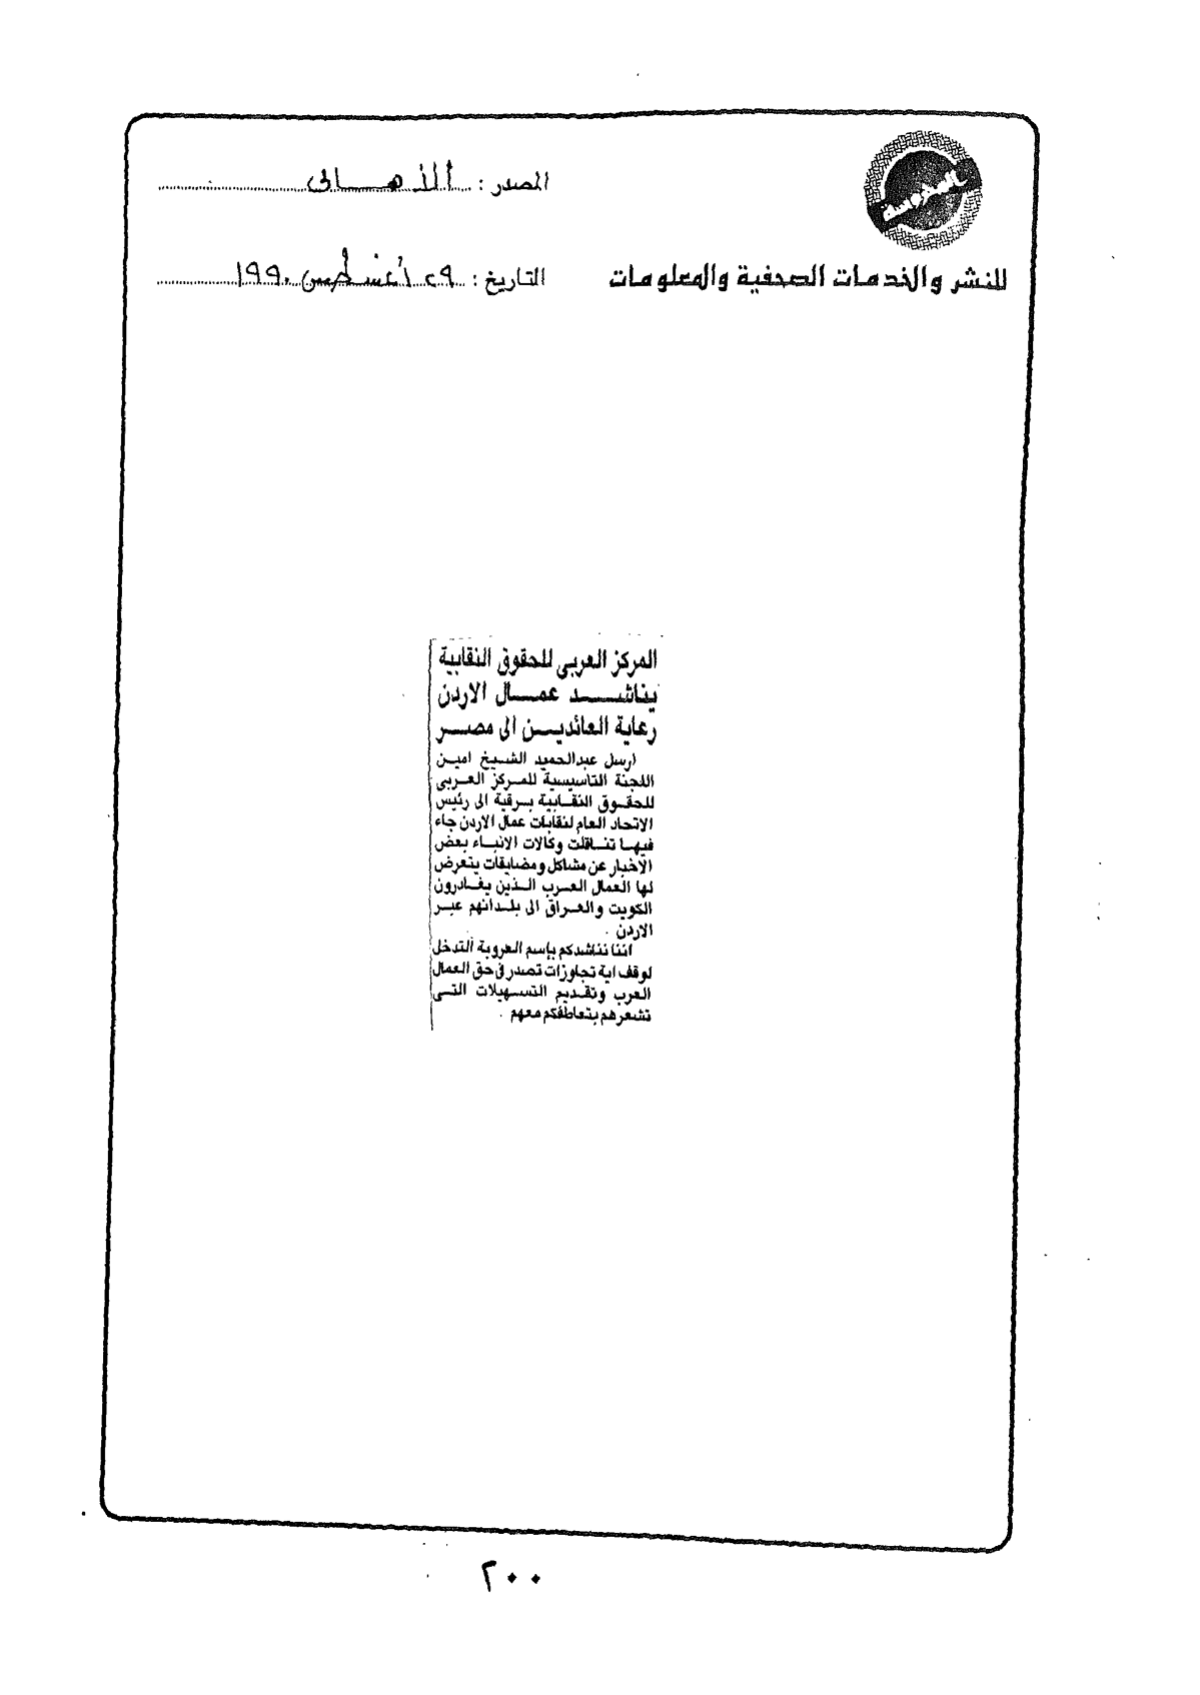 المحروسة
المصدر : الأهالى
للنشر والخدمات الصحفية والمعلومات
التاريخ : ٢٩ أغسطس ١٩٩٠
المركز العربى للحقوق النقابية
يناشد عمال الاردن
رعاية العائدين الى مصر
ارسل عبدالحميد الشيخ امين
اللجنة التاسيسية للمركز العربى
للحقوق النقابية برقية الى رئيس
الاتحاد العام لنقابات عمال الاردن جاء
فيها تناقلت وكالات الانباء بعض
الاخبار عن مشاكل ومضايقات يتعرض
لها العمال العرب الذين يغادرون
الكويت والعراق الى بلدانهم عبر
الاردن .
اننا نناشدكم بإسم العروبة التدخل
لوقف اية تجاوزات تصدر فى حق العمال
العرب وتقديم التسهيلات التى
تشعرهم بتعاطفكم معهم .
٢٠٠